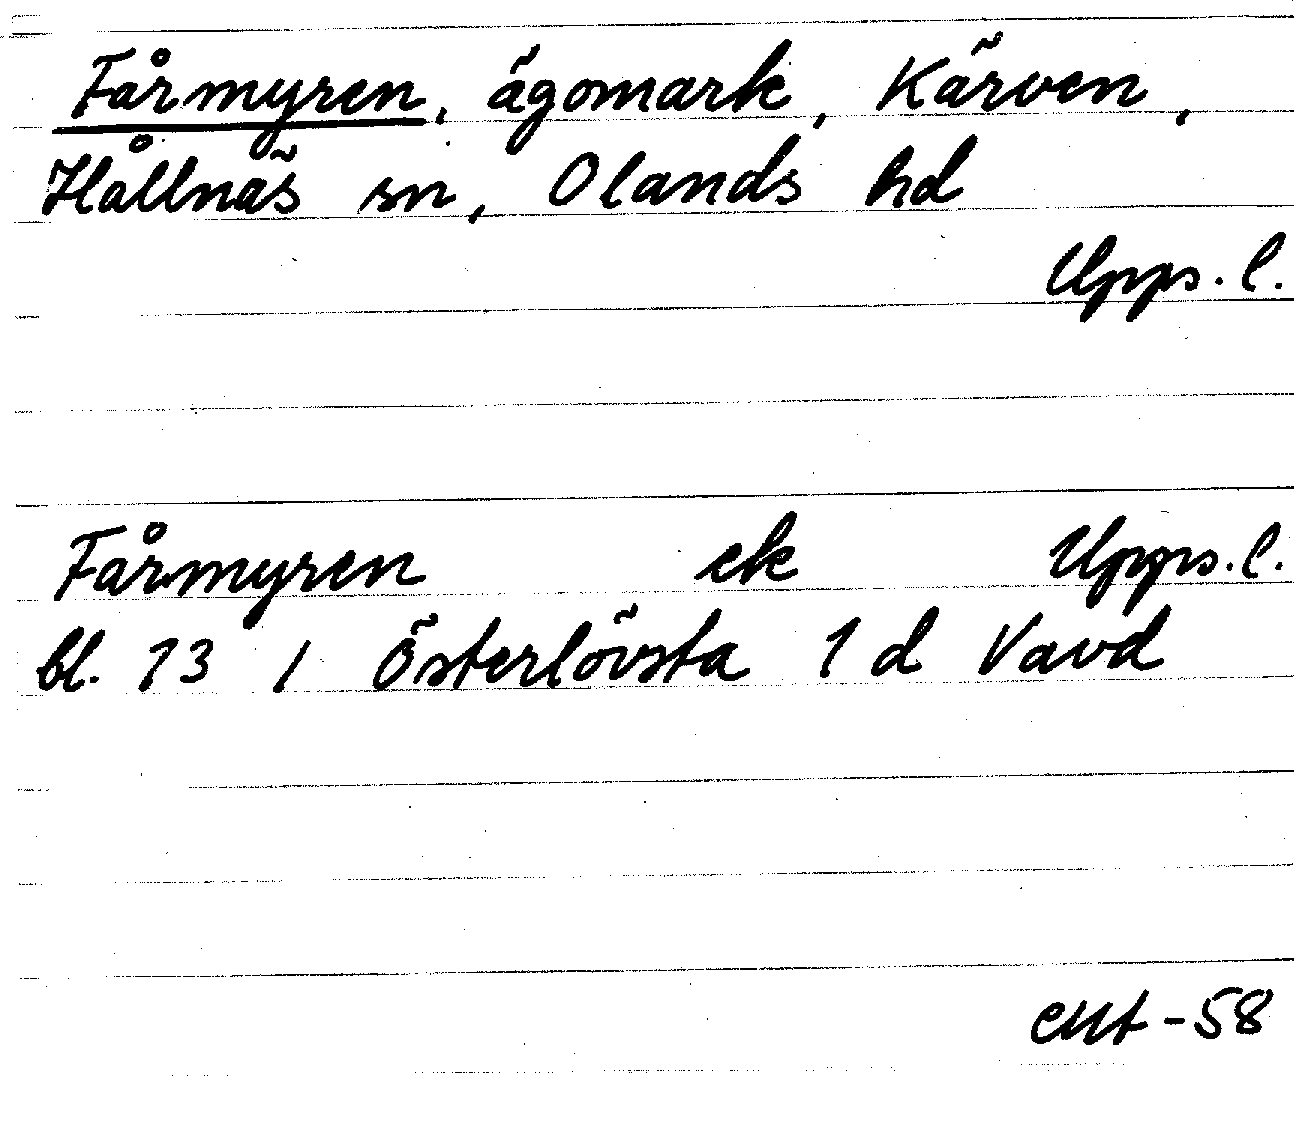 Fårmyren, ägomark, Kärven,
Hållnäs sn, Olands hd
Upps. l.
Fårmyren ek Upps. l.
bl. 13 I Österlövsta 1 d Vavd
-58